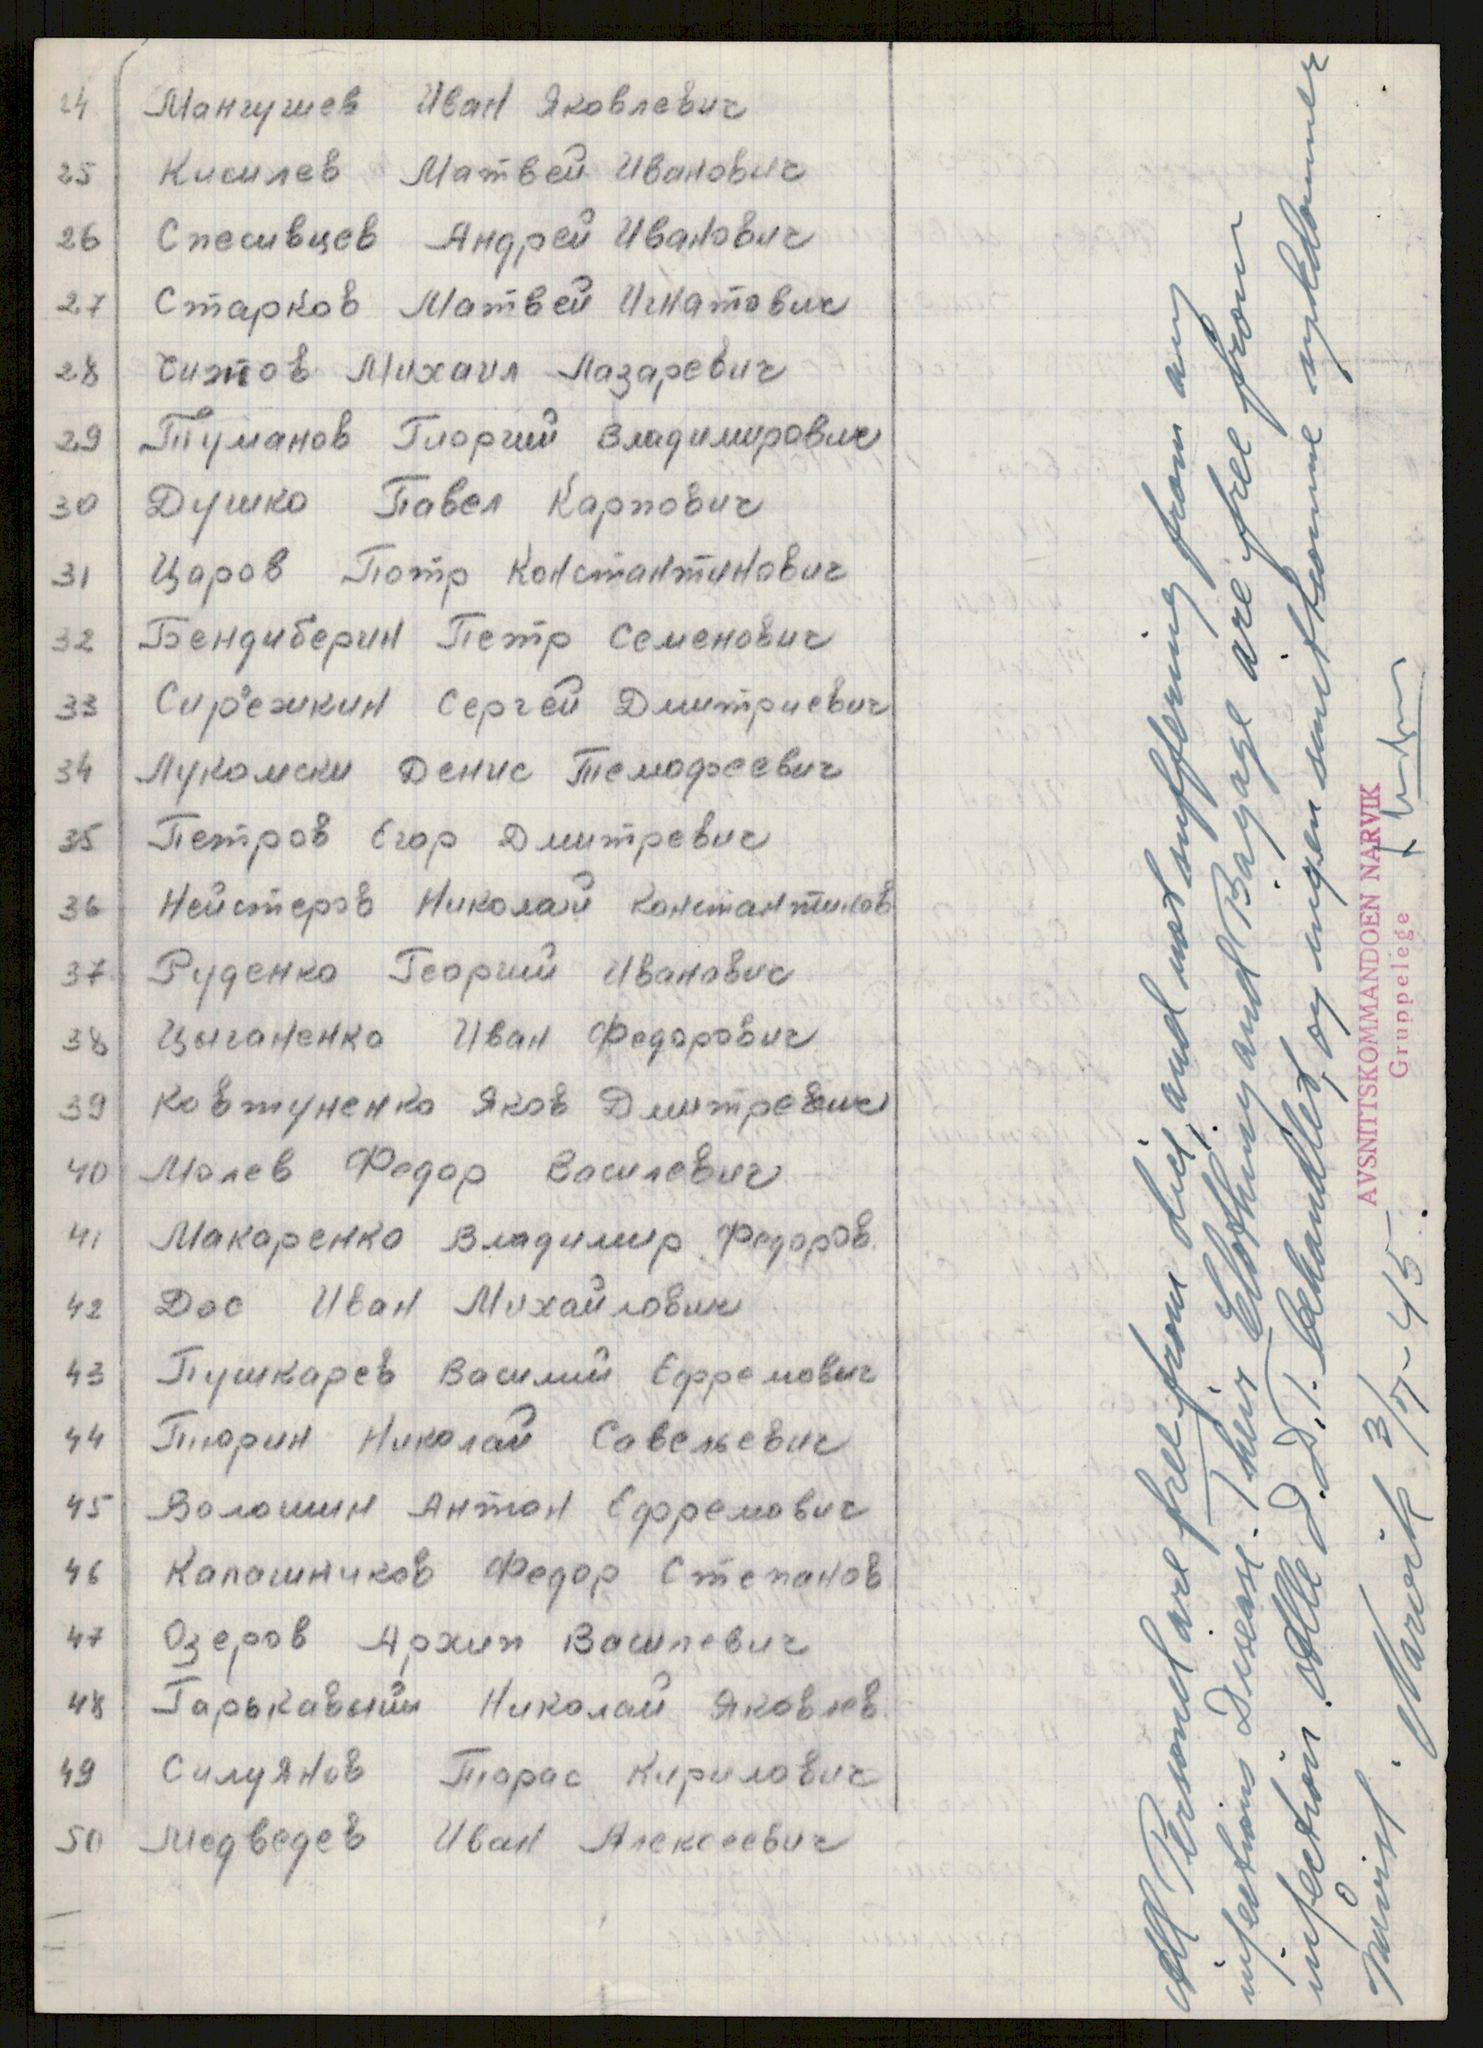 24 Мангушев Иван Яковлевич
25 Кисилев Матвей Иванович
26 Спесивцев Андрей Иванович
27 Старков Матвей Игнатович
28 Михаил Лазаревич
29 Туманов Гиоргий Владимирович
30 Душко Павел Карпович
31 Царов Потр Константинович
32 Бендиберин Петр Семенович
33 Сергей Дмитриевич
34 Лукомски Денис Темофеевич
35 Петров Егор Дмитревич
36 Нейстеров Николай Константинов
37 Руденко Георгий Иванович
38 Цыганенко Иван Федорович
39 Ковтуненко Яков Дмитревич
40 Молев Федор Василевич
41 Макаренко Владимир Федоров.
42 Дос Иван Михайлович
43 Пушкарев Василий Ефремович
44 Тюрин Николай Савельевич
45 Волошин Антон Ефремович
46 Капашников Федор Степанов
47 Озеров Архип Василевич
48 Гарькавый Николай Яковлев.
49 Силуянов Тарас Кирилович
50 Медведев Иван Алексеевич
All Personel are free from lice, and not suffering from any
infectious Disease. Their Clothing and Bagage are free from
infection. Alle D.D.T. behandlet, og ingen smitsomme sykdommer
Narvik 3/7-45.
AVSNITTSKOMMANDOEN NARVIK
Gruppelege